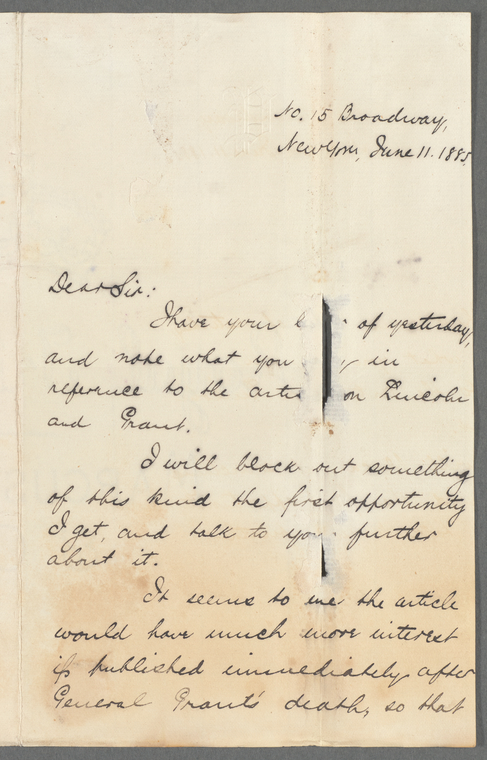 No. 15 Broadway,
New York, June 11. 1885.
Dear Sir:
I have your of yesterday,
and note what you in
reference to the on Lincoln
and Grant.
I will block out something
of this kind the first opportunity
I get, and talk to you further
about it.
It seems to me the article
would have much more interest
if published immediately after
General Grant's death, so that